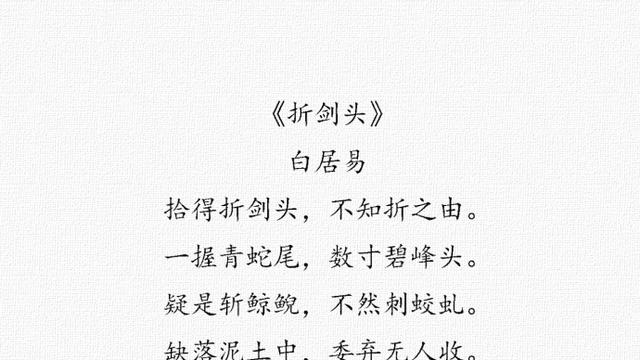 《折剑头》
白居易
拾得折剑头，不知折之由。
一握青蛇尾，数寸碧峰头。
疑是斩鲸鲵，不然刺蛟虬。
缺落泥土中，委弃无人收。